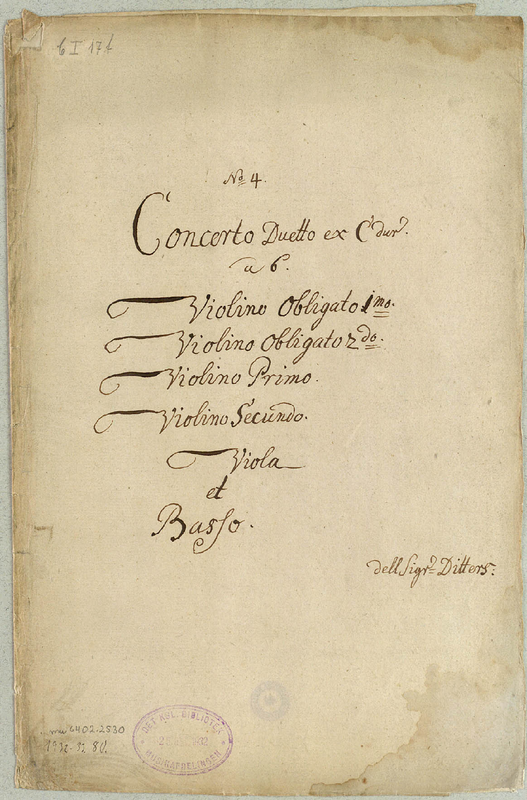 6 I 17
No 4.
Concerto Duetto ex C dur.
a 6.
Violino Obligato 1mo.
Violino Obligato 2do.
Violino Primo.
Violino Secundo.
Viola
et
Basso.
dell Sigre Ditters.
mu 6402.2530
DET KGL. BIBLIOTEK
MUSIKAFDELINGEN